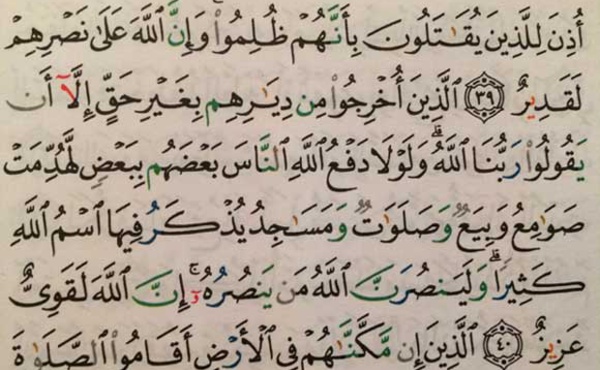 أُذِنَ لِلَّذِينَ يُقَٰتَلُونَ بِأَنَّهُمْ ظُلِمُوا۟ وَإِنَّ ٱللَّهَ عَلَىٰ نَصْرِهِمْ
لَقَدِيرٌ ٣٩ ٱلَّذِينَ أُخْرِجُوا۟ مِن دِيَٰرِهِم بِغَيْرِ حَقٍّ إِلَّآ أَن
يَقُولُوا۟ رَبُّنَا ٱللَّهُ ۗ وَلَوْلَا دَفْعُ ٱللَّهِ ٱلنَّاسَ بَعْضَهُم بِبَعْضٍ لَّهُدِّمَتْ
صَوَٰمِعُ وَبِيَعٌ وَصَلَوَٰتٌ وَمَسَٰجِدُ يُذْكَرُ فِيهَا ٱسْمُ ٱللَّهِ
كَثِيرًا ۗ وَلَيَنصُرَنَّ ٱللَّهُ مَن يَنصُرُهُۥٓ ۚ إِنَّ ٱللَّهَ لَقَوِىٌّ
عَزِيزٌ ٤٠ ٱلَّذِينَ إِن مَّكَّنَّٰهُمْ فِى ٱلْأَرْضِ أَقَامُوا۟ ٱلصَّلَوٰةَ